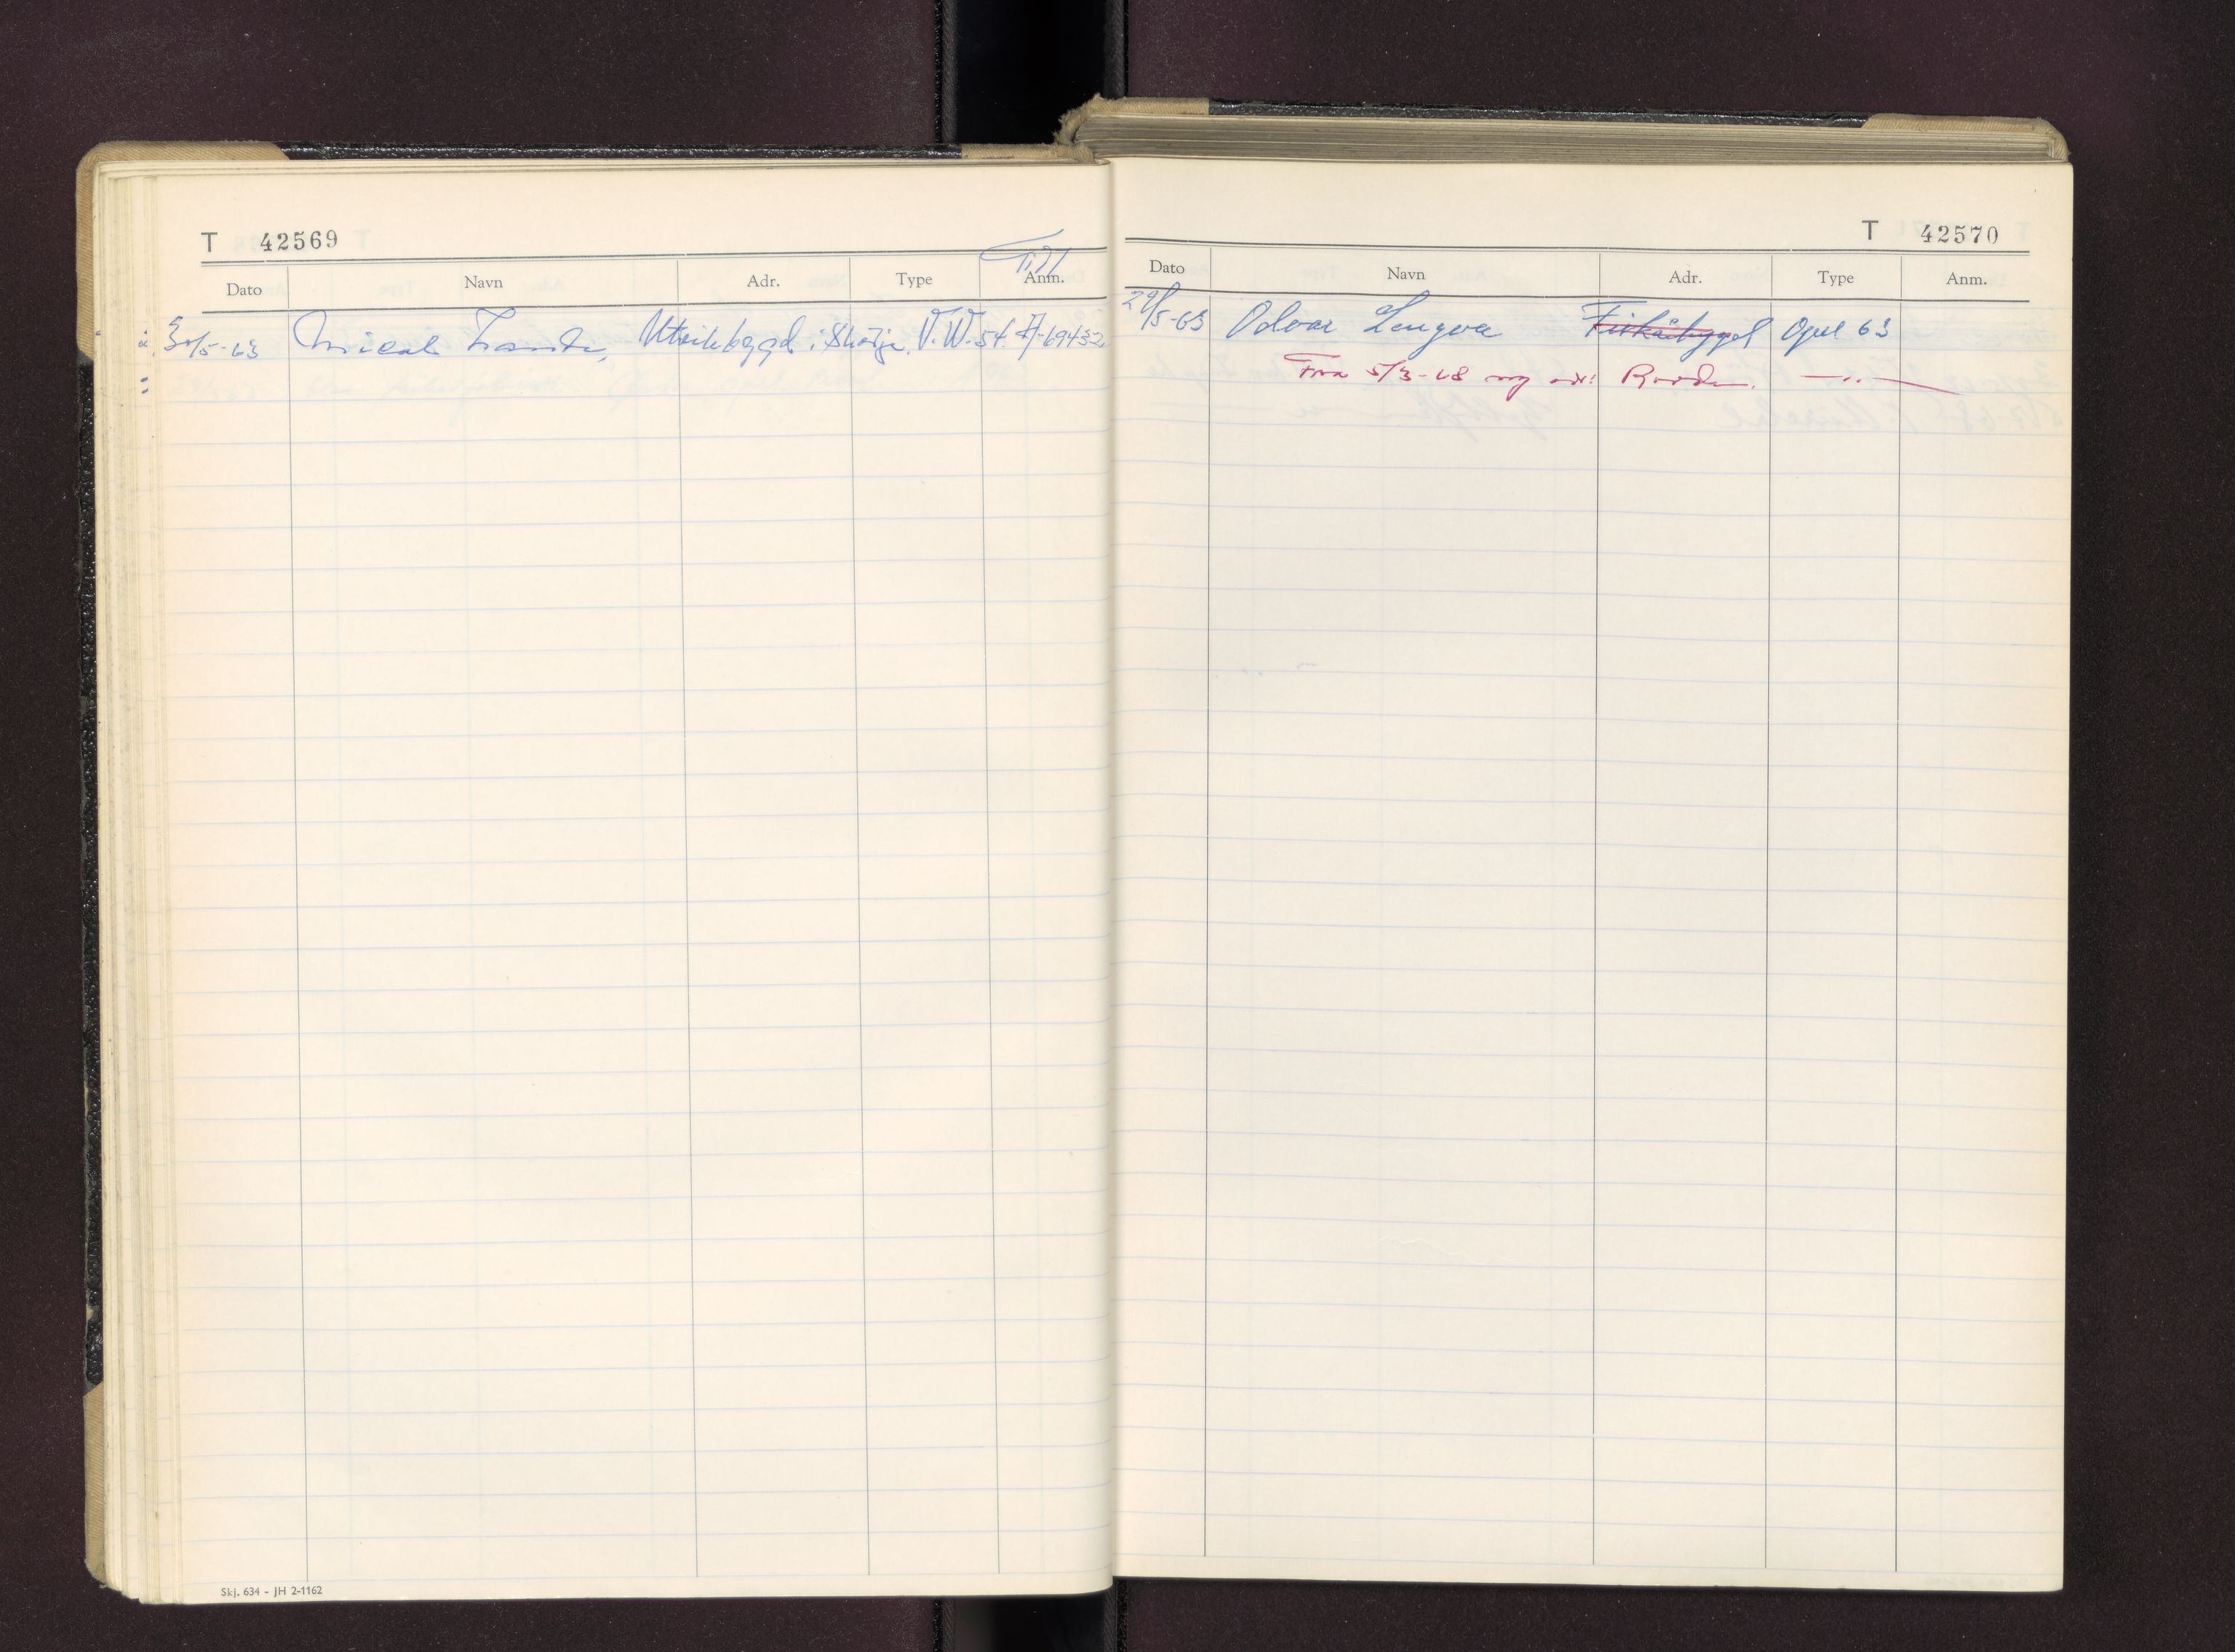 T 42569
Till
Dato Navn Adr. Type Anm.
30/5-63 i Skodje. V.W. 54. A-69432
Skj. 634 - JH 2-1162
T 42570
Dato Navn Adr. Type Anm.
29/5-63 Odvar Lengva Opel 63
Fra 5/3-68 ny adr: —〃—